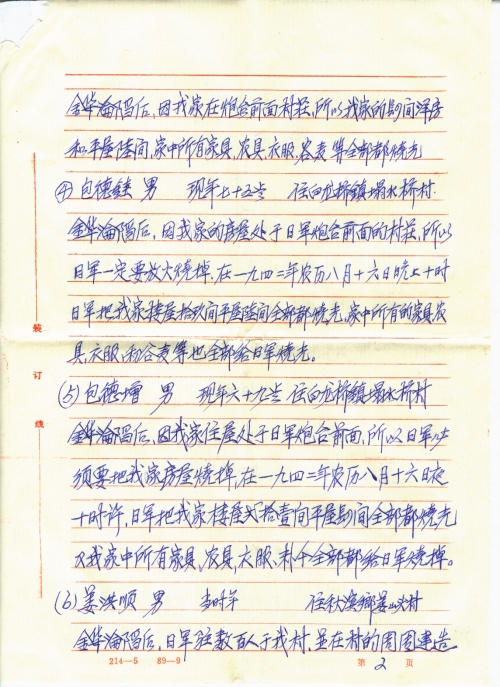 金华沦陷后，因我家在炮台前面村莊，所以我家的 间洋房
和平屋陆间，家中所有家具，农具，衣服，谷麦等全部都烧光
④ 包德 男 现年七十五岁 住白龙桥镇塌水桥村.
金华沦陷后，因我家的房屋处于日军炮台前面的村莊，所以
日军一定要放火烧掉.在一九四二年农历八月十六日晚上十时
日军把我家楼屋拾玖间平屋陆间全部都烧光.家中所有的家具农
具，衣服，和谷麦等也全部给日军烧光。
⑤ 包德增 男 现年六十九岁 住白龙桥镇塌水桥村
金华沦陷后，因我家住屋处于日军炮台前面，所以日军必
须要把我家房屋烧掉，在一九四二年农历八月十六日夜
十时许，日军把我家楼屋 拾壹间平屋 间全部都烧光
又我家中所有家具，农具，衣服、 全部都给日军烧掉。
(6) 姜洪顺 男 当时年 住秋滨鄉姜山头村
金华沦陷后，日军驻数百人于我村，并在村的周围建造
装
订
线
214—5 89—9
第 2 页